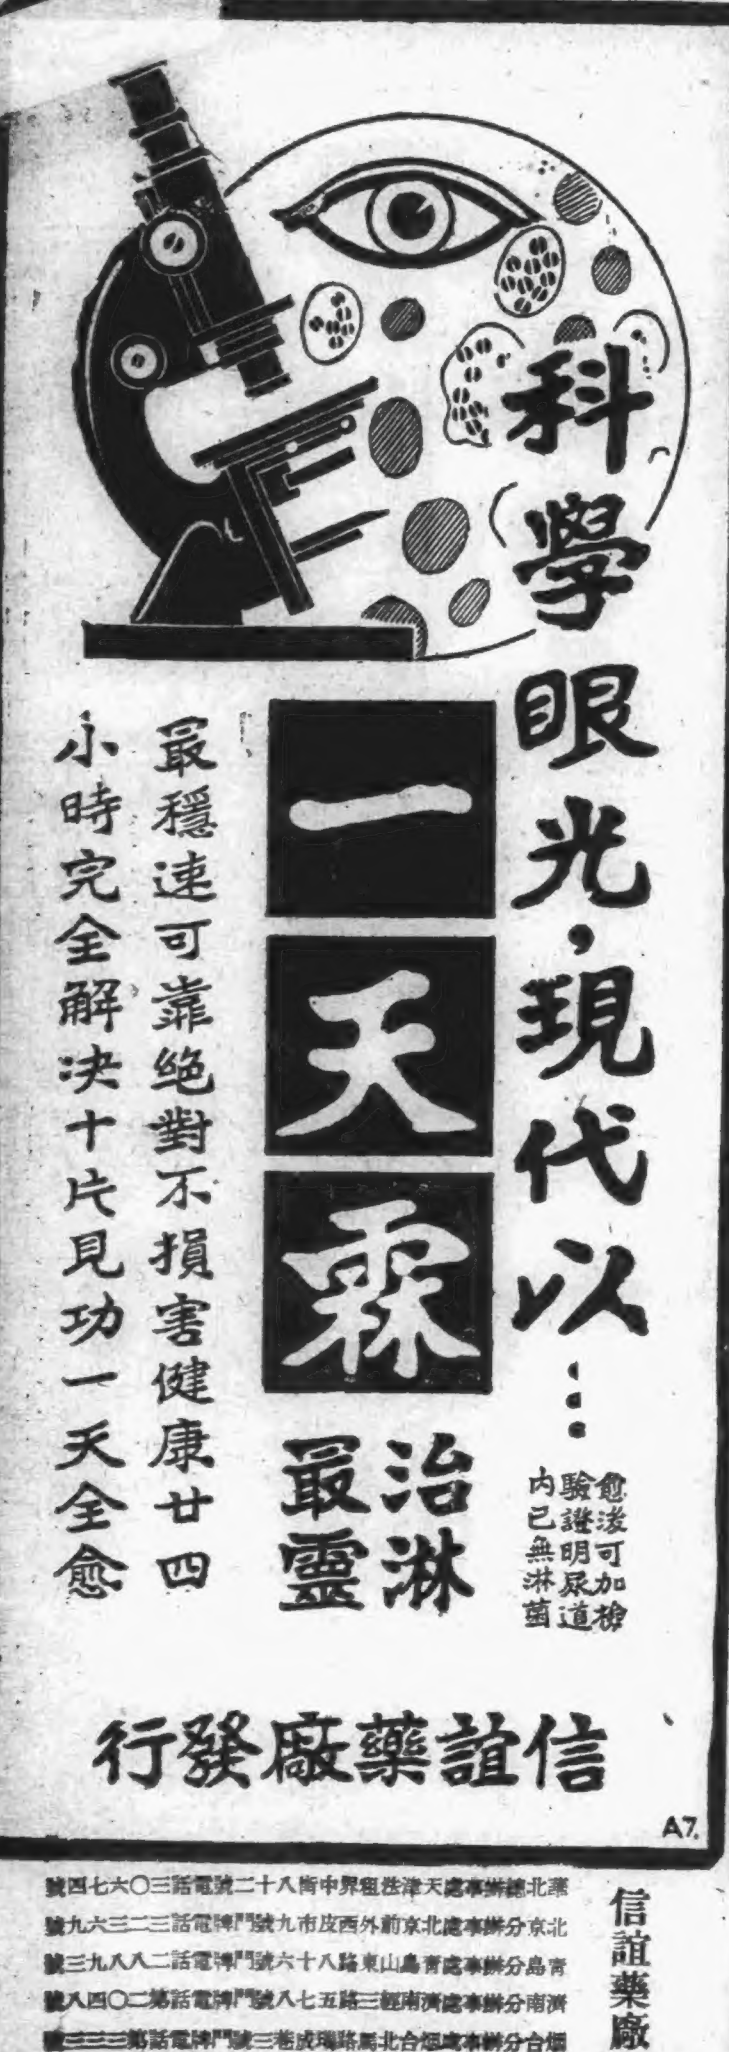 科學眼光，現代以…
愈後可加檢
驗證明尿道
內已無淋菌
一天霖
治淋
最靈
最穩速可靠絶對不損害健康廿四
小時完全解決十片見功一天全愈
信誼藥廠發行
A7.
信誼藥廠
華北總辦事處天津法租界中街八十二號電話三〇六七四號
北京分辦事處北京前外西皮市九號門牌電話三二三六九號
青島分辦事處青島山東路八十六號門牌電話二八八九三號
濟南分辦事處濟南經三路五七八號門牌電話第二〇四八號
烟台分辦事處烟台北馬路瑞成巷三號門牌電話第三三三號